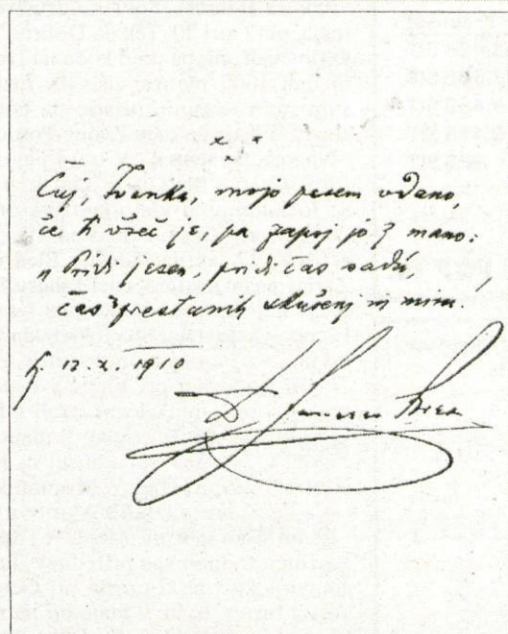 × × ×
Čuj, Ivanka, mojo pesem vdano,
če ti všeč je, pa zapoj jo z mano:
„Pridi jesen, pridi čas sadú,
čas prestanih skušenj in miru.
12. X. 1910